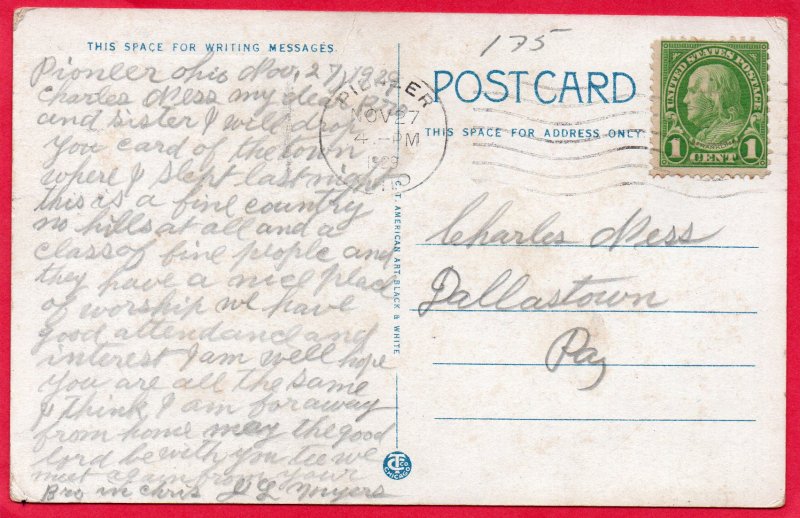 THIS SPACE FOR WRITING MESSAGES
Pioneer Ohio Nov, 27, 1929
Charles Ness my dear Bro
and sister I will drop
you card of the
where I slept last night
this is a fine country
no hills at all and a
class of fine people and
they have a nice place
of worship we have
good attendanc and
interest I am well hope
you are all the same
I think I am for away
from home may the good
lord be with you tee we
meet again from your
Bro in Chris J L Myers
C. T. AMERICAN ART BLACK & WHITE
CTCO
CHICAGO
175
PIONEER
NOV 27
4 - PM
1929
OHIO
POST CARD
THIS SPACE FOR ADDRESS ONLY
UNITED STATES POSTAGE
FRANKLIN
1 CENT 1
Charles Ness
Dallastown
Pa